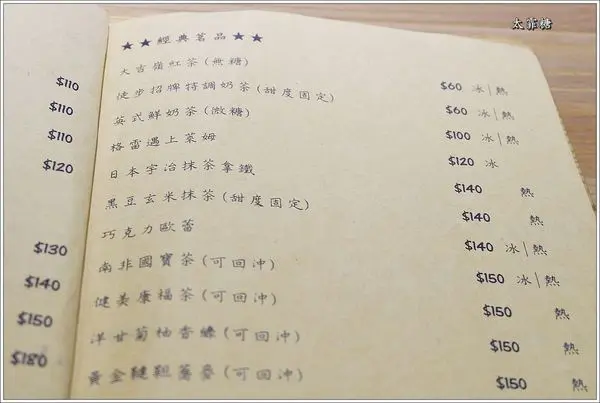 太妃糖
$110
$110
$110
$120
$130
$140
$150
$180
★★經典茗品★★
大吉嶺紅茶(無糖) $60 冰|熱
徒步招牌特調奶茶(甜度固定) $60 冰|熱
英式鮮奶茶(微糖) $100 冰|熱
格雷遇上萊姆 $120 冰
日本宇治抹茶拿鐵 $140 熱
黑豆玄米抹茶(甜度固定) $140 熱
巧克力歐蕾 $140 冰|熱
南非國寶茶(可回沖) $150 冰|熱
健美康福茶(可回沖) $150 熱
洋甘菊柚香綠(可回沖) $150 熱
黃金韃靼蕎麥(可回沖) $150 熱